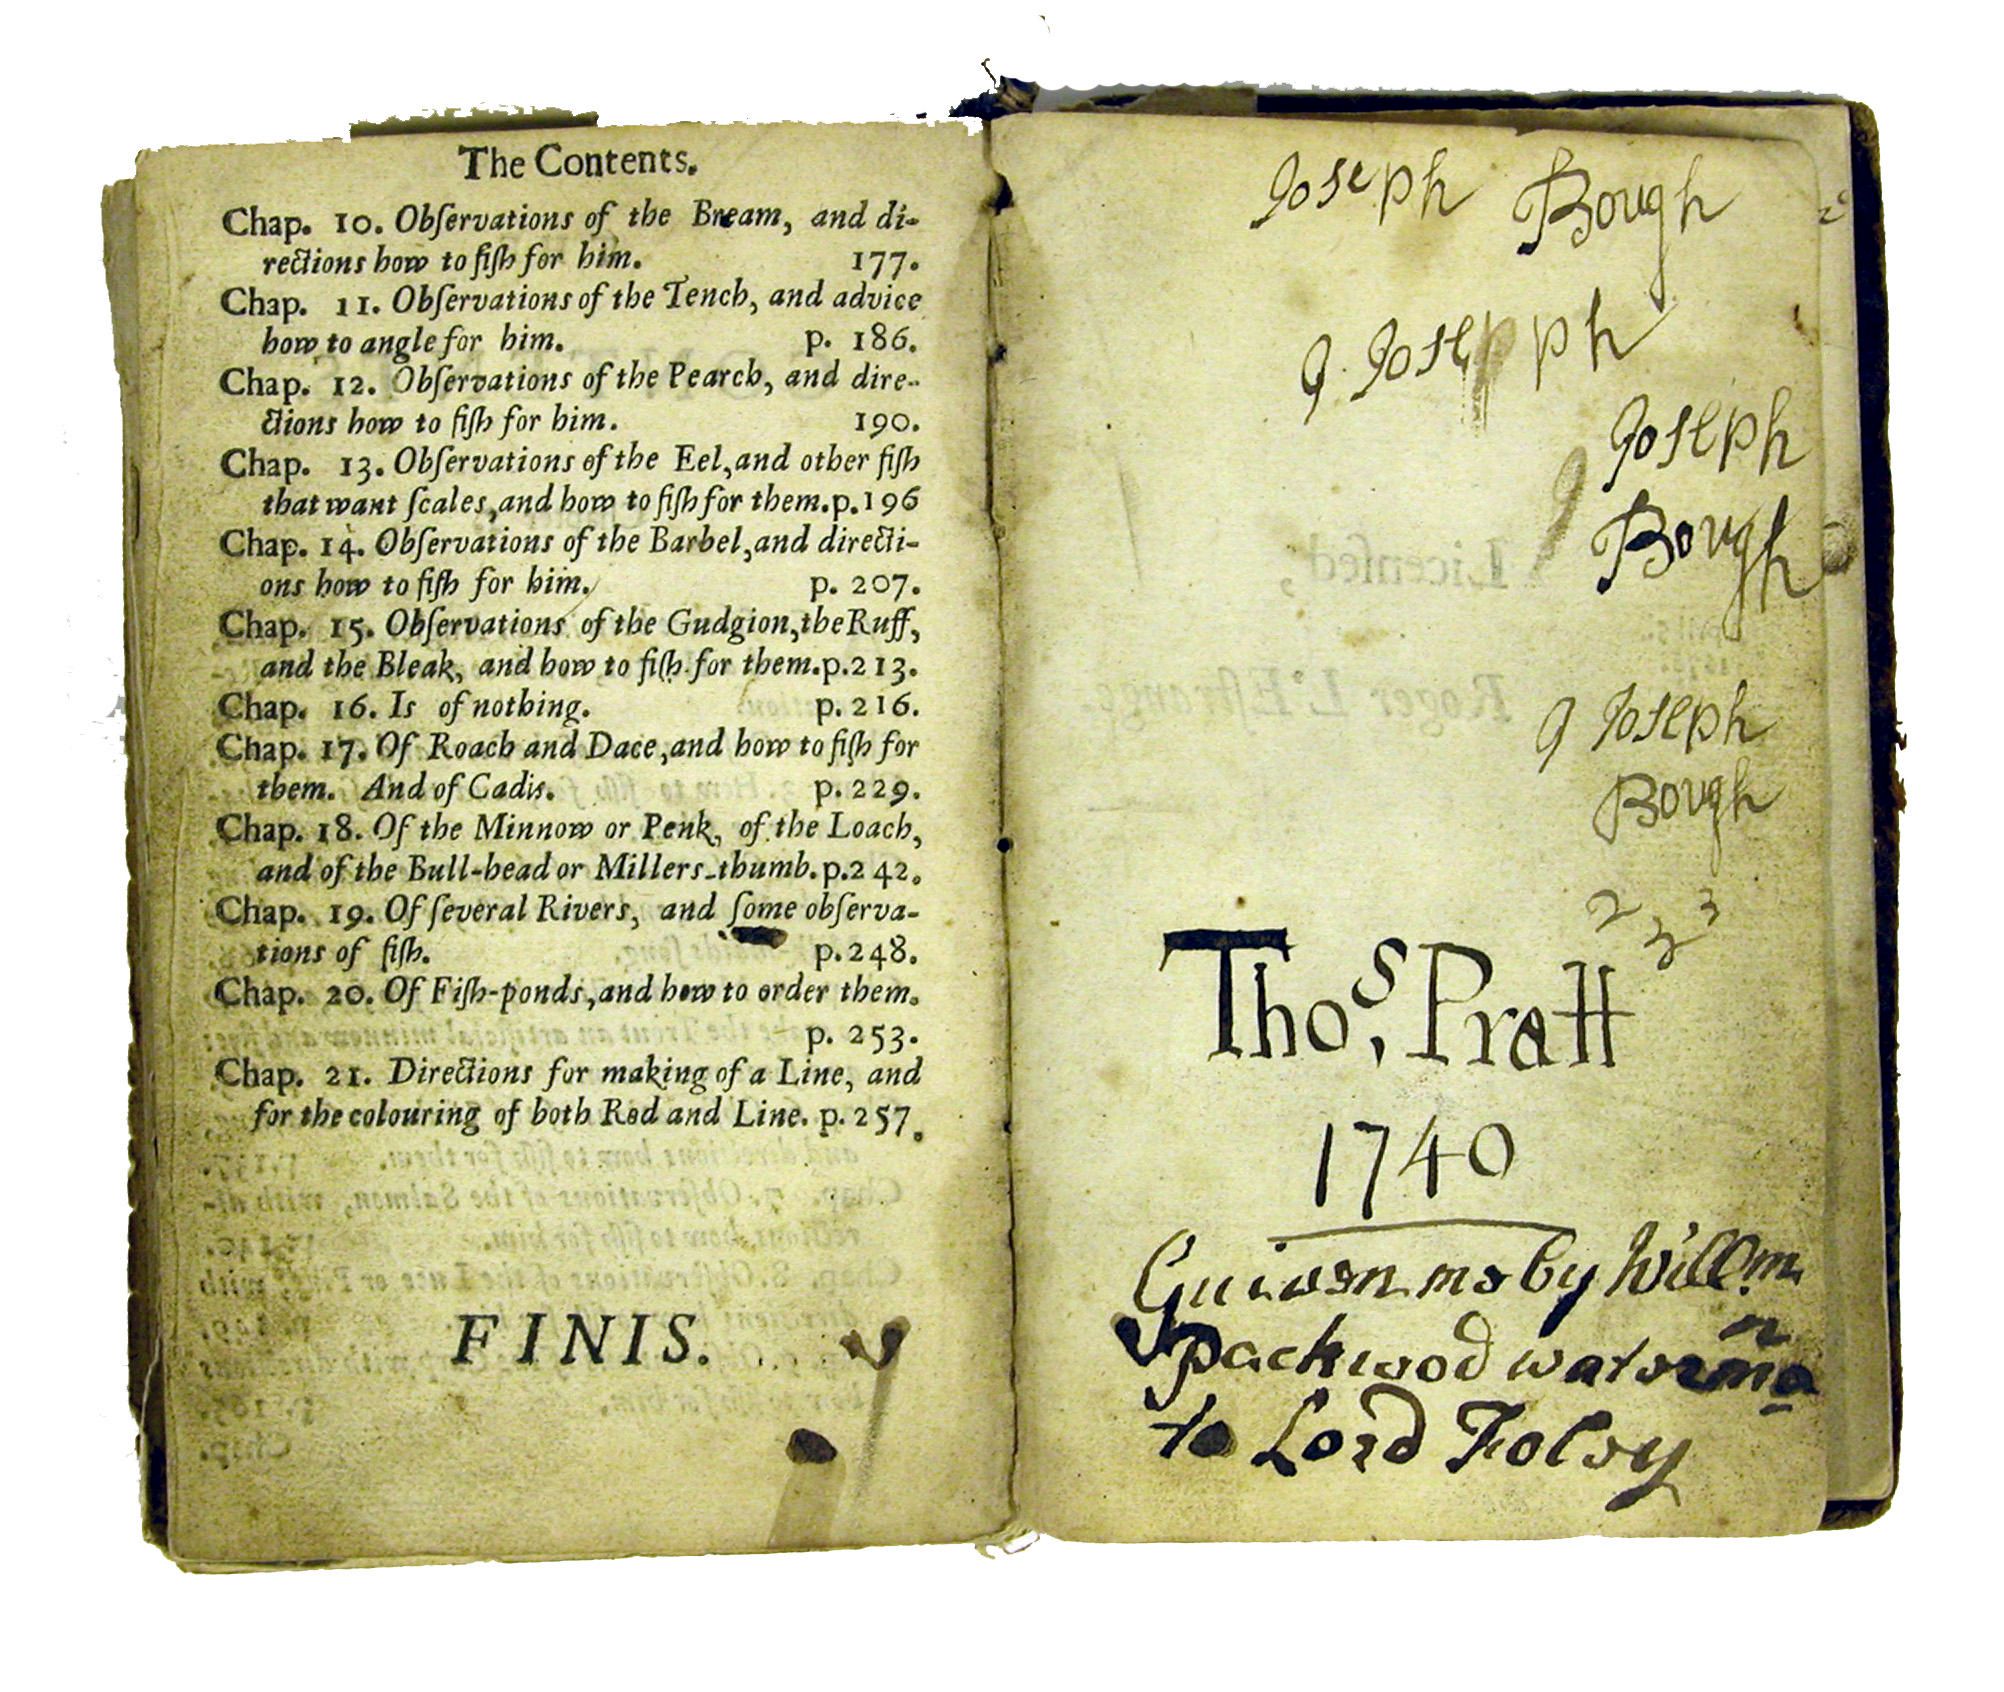 The Contents.
Chap. 10. Obſervations of the Bream, and di-
rections how to fiſh for him. 177.
Chap. 11. Obſervations of the Tench, and advice
how to angle for him. p. 186.
Chap. 12. Obſervations of the Pearch, and dire-
ctions how to fiſh for him. 190.
Chap. 13. Obſervations of the Eel, and other fiſh
that want ſcales, and how to fiſh for them. p. 196
Chap. 14. Obſervations of the Barbel, and directi-
ons how to fiſh for him. p. 207.
Chap. 15. Obſervations of the Gudgion, the Ruff,
and the Bleak, and how to fiſh for them. p. 213.
Chap. 16. Is of nothing. p. 216.
Chap. 17. Of Roach and Dace, and how to fiſh for
them. And of Cadis. p. 229.
Chap. 18. Of the Minnow or Penk, of the Loach,
and of the Bull-head or Millers-thumb. p. 242.
Chap. 19. Of ſeveral Rivers, and ſome obſerva-
tions of fiſh. p. 248.
Chap. 20. Of Fiſh-ponds, and how to order them.
p. 253.
Chap. 21. Directions for making of a Line, and
for the colouring of both Rod and Line. p. 257.
FINIS.
Joseph Bough
J Josepph
Joseph
Bough
J Joseph
Bough
Licenſed,
Roger L'Eſtrange.
Thos. Pratt
1740
Guiven me by Willm
Packwood waterman
to Lord Foley